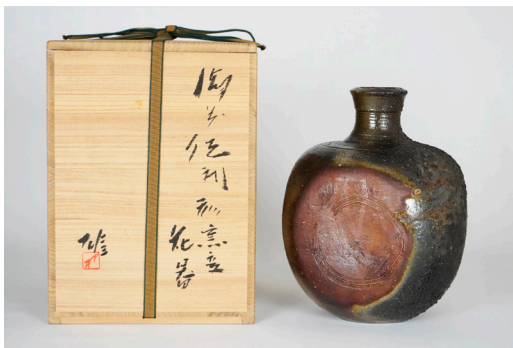 備前徳利形窯変
花器
雄